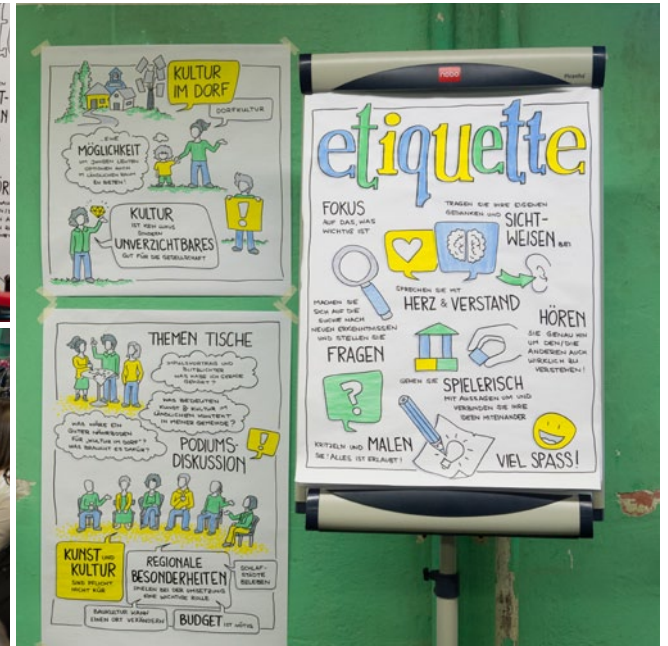 T-
N
ÜR
KULTUR
IM DORF
DORFKULTUR
...EINE
MÖGLICHKEIT
UM JUNGEN LEUTEN
OPTIONEN AUCH
IM LÄNDLICHEN RAUM
ZU BIETEN!
KULTUR
IST KEIN LUXUS
SONDERN
UNVERZICHTBARES
GUT FÜR DIE GESELLSCHAFT
!
THEMEN TISCHE
IMPULSVORTRAG UND
BLITZLICHTER
WAS HABE ICH GERADE
GEHÖRT?
WAS BEDEUTEN
KUNST & KULTUR IM
LÄNDLICHEN KONTEXT
IN MEINER GEMEINDE?
WAS WÄRE EIN
GUTER NÄHRBODEN
FÜR „KULTUR IM DORF“?
WAS BRAUCHT ES DAFÜR?
!
PODIUMS-
DISKUSSION
KUNST UND
KULTUR
SIND PFLICHT
NICHT KÜR
REGIONALE
BESONDERHEITEN
SPIELEN BEI DER UMSETZUNG
EINE WICHTIGE ROLLE
SCHLAF-
STÄDTE
BELEBEN
BAUKULTUR KANN
EINEN ORT VERÄNDERN
BUDGET IST NÖTIG
nobo
Piranha
etiquette
FOKUS
AUF DAS, WAS
WICHTIG IST
TRAGEN SIE IHRE EIGENEN
GEDANKEN UND SICHT-
WEISEN BEI
SPRECHEN SIE MIT
HERZ & VERSTAND
MACHEN SIE
SICH AUF DIE
SUCHE NACH
NEUEN ERKENNTNISSEN
UND STELLEN SIE
FRAGEN
?
HÖREN
SIE GENAU HIN
UM DEN/DIE
ANDEREN AUCH
WIRKLICH ZU
VERSTEHEN!
GEHEN SIE SPIELERISCH
MIT AUSSAGEN UM UND
VERBINDEN SIE IHRE
IDEEN MITEINANDER
KRITZELN UND MALEN
SIE! ALLES IST ERLAUBT!
VIEL SPASS!